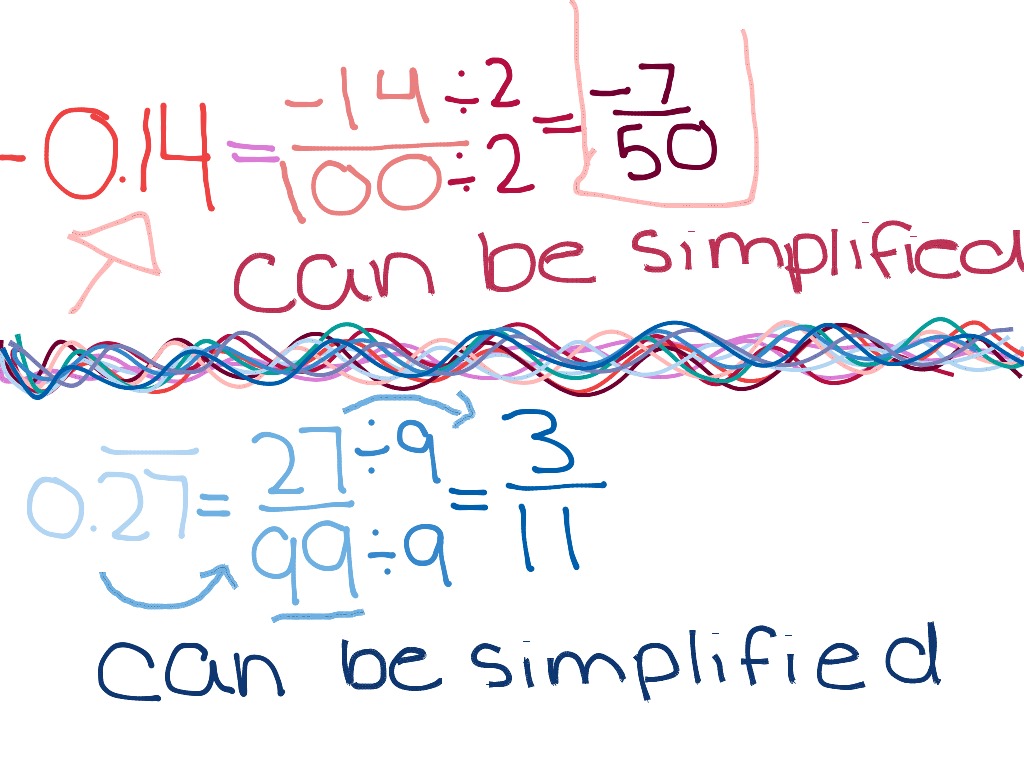 -0.14 = -14/100 ÷2/÷2 = -7/50
can be simplified
0.2̅7̅ = 27/99 ÷9/÷9 = 3/11
can be simplified